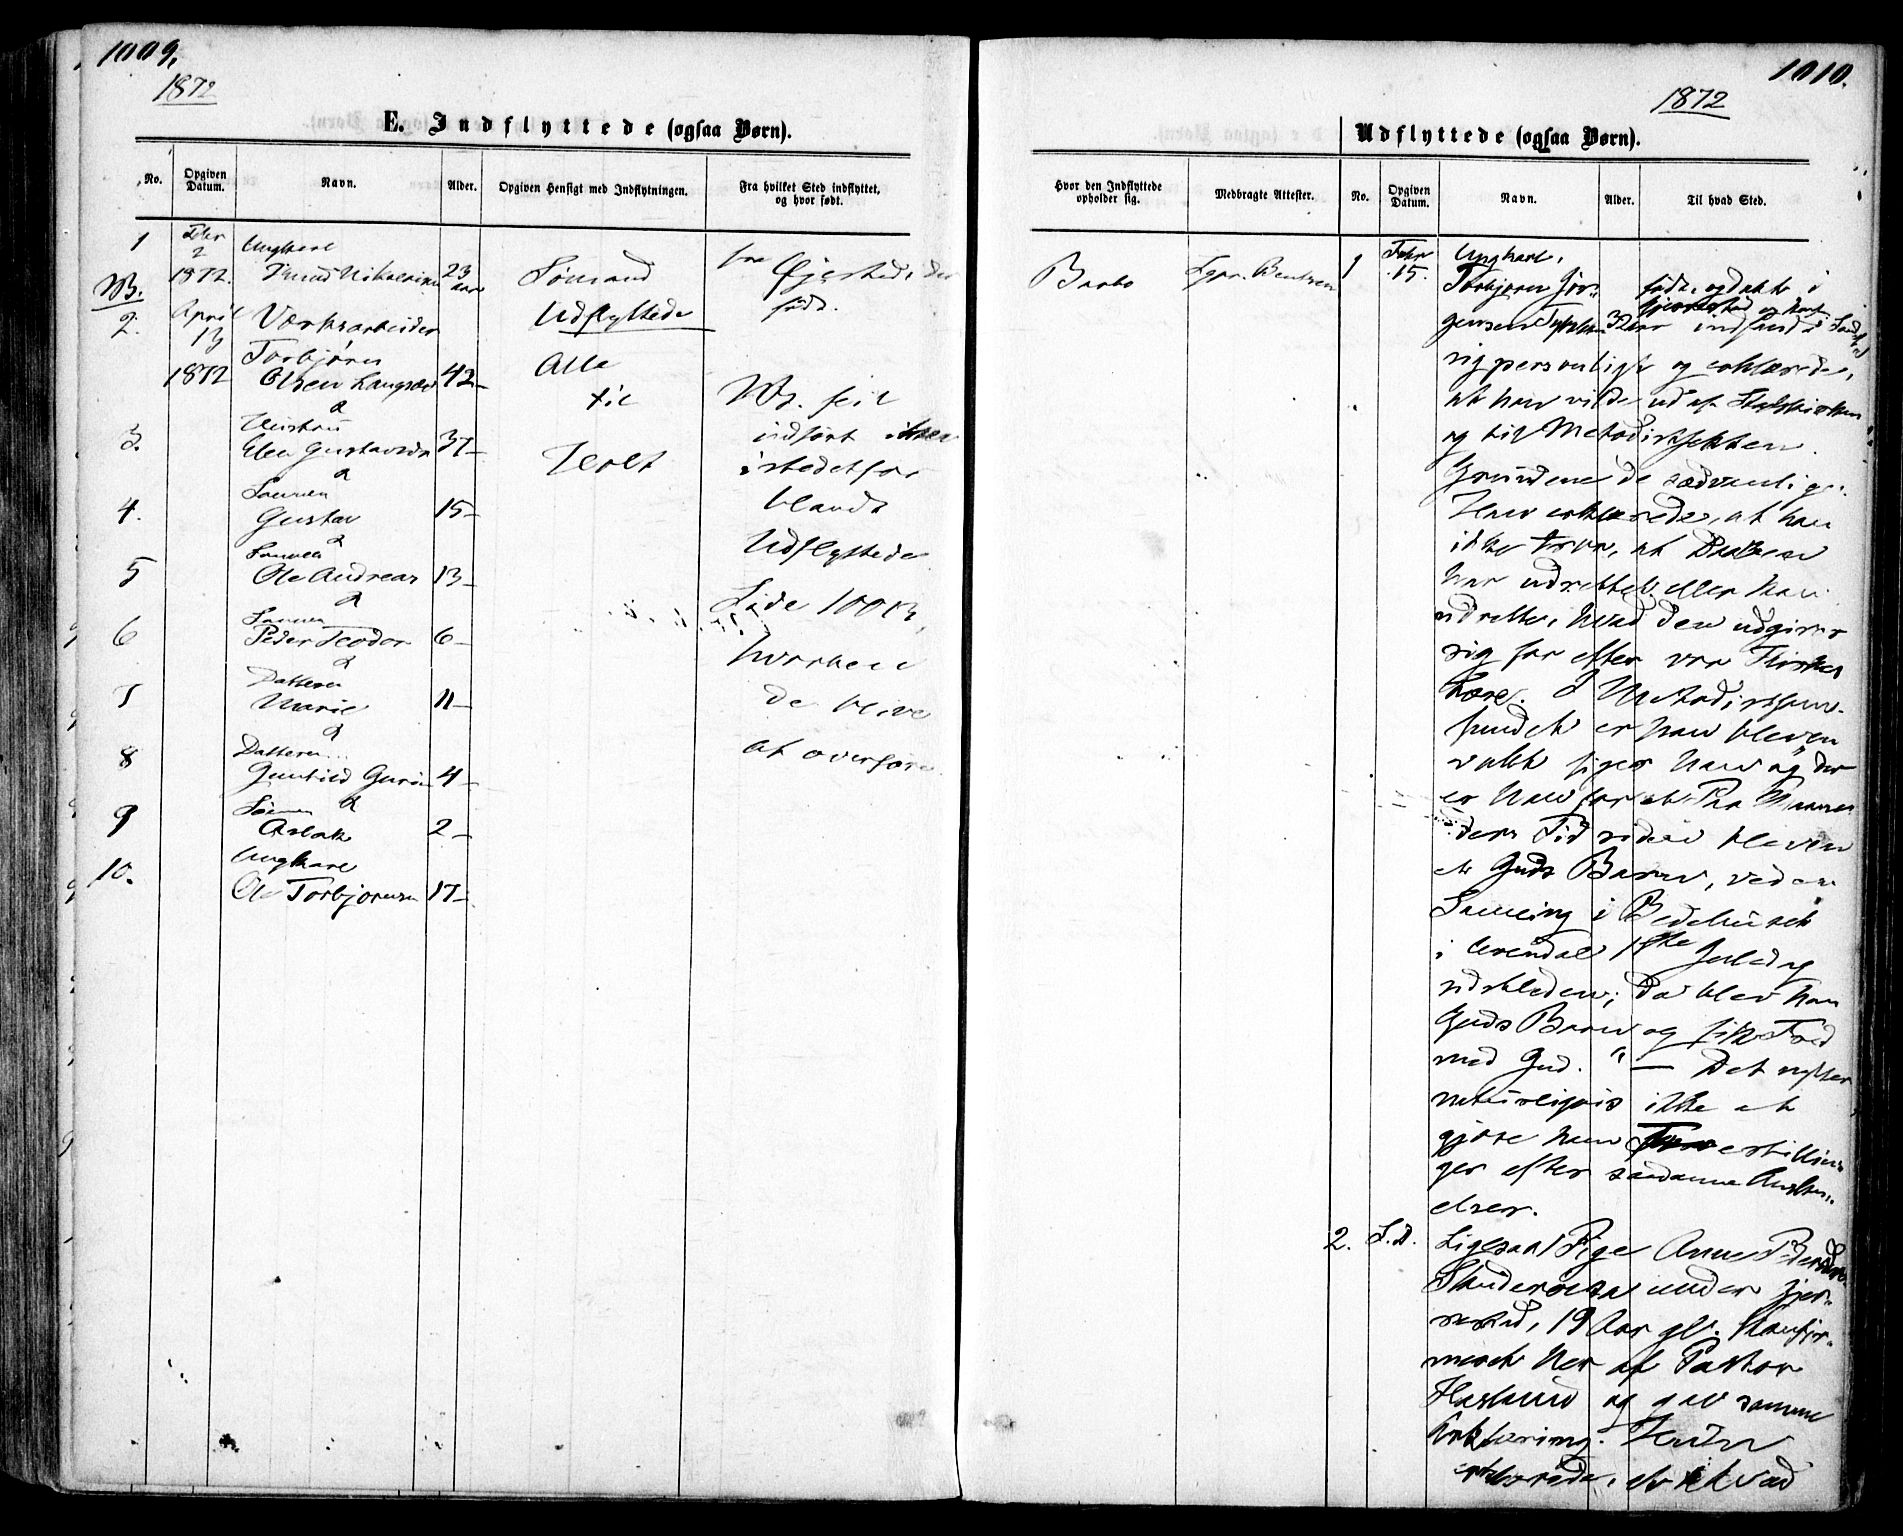 1009,
1872
E. Indflyttede (ogsaa Børn).
No.
Opgiven Datum.
Navn.
Alder.
Opgiven Hensigt med Indflytningen.
Fra hvilket Sted indflyttet, og hvor født.
1
Febr 2 1872.
Ungkarl
Knud Nikolai
23 aar
Sømand
fra Øiestad, der født.
NB.
2.
April 13 1872
Værksarbeider
Torbjørn
Olsen Langsæv
42
Udflyttede
Alle
til
Holt
NB. feil
indført
istedetfor
blandt
Udflyttede
Side 1013,
hvorhen
de blive
at overføre.
3.
&
Hustru
Elen Gustavsdr
37
4.
&
Sønnen
Gustav
15
5
&
Sønnen
Ole Andreas
13
6
&
Sønnen
Peder Teodor
6
7
&
Datteren
Marie
11
8
&
Datteren
Gunhild Gurine
4
9
&
Søn
Aslak
2
10.
Ungkarl
Ole Torbjørnsen
17
1010.
1872
Udflyttede (ogsaa Børn).
Hvor den Indflyttede opholder sig.
Medbragte Attester.
No.
Opgiven Datum.
Navn.
Alder.
Til hvad Sted.
Barbo
1
Febr 15.
Ungkarl,
Torbjørn Jør-
gensen
32 aar
født og døbt i
indfandt
sig personligt og erklærede,
at han vilde ud af Statskirken
og til Methodistsekten.
Grundene de sædvanlige.
Han erklærede, at han
ikke tror, at Daaben
har udrettet eller kan
udrette, hvad den udgiver
sig for efter vor Kirkes
Lære. I Metodistsam-
fundet er han bleven
vakt siger han og der
er han for et Par Maane-
ders Tid siden bleven
et Guds Barn, ved en
Samling i Bedehuset
i Arendal 1ste Juledag
sidstleden; da blev han
Guds Barn og fik Fred
med Gud." — Det nytter
naturligvis ikke at
gjøre ham Forestillin-
ger efter saadanne Ansku-
elser.
2.
S.D.
Ligesaa Pige Anne Pedersdatter
under Hjer-
nestad, 19 Aar gl. konfir-
meret her af Pastor
Haslund og gav samme
Erklæring. Hun
erklærede, at hvad